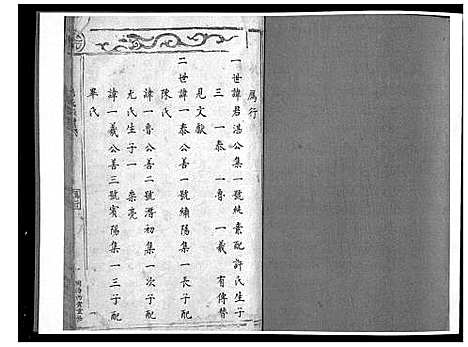 鴈行
一世諱君湛公集一號純素配許氏生子
三 一泰 一魯 一羲 有傳贊
見文獻
二世諱一泰公善一號繡陽集一長子配
陳氏
諱一魯公善二號潛初集一次子配
尤氏生子一 棐亮
諱一羲公善三號賓陽集一三子配
辜氏